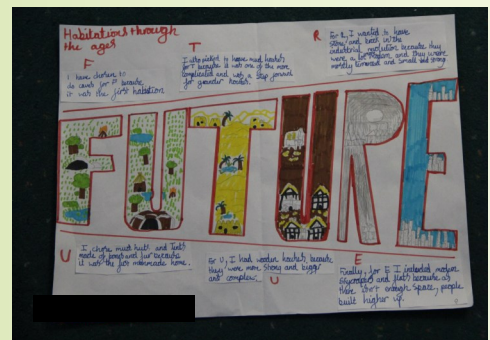 Habitations through
the ages
F
I have chosen to
do caves for F because
it was the first habitation.
T
I attempted to have mud houses
for T because it was one of the more
complicated and was a step forward
for grander houses.
R
For R, I wanted to have
stone and brick in the
industrial revolution because they
were a lot modern and they were
mostly terraced and small and strong
FUTURE
U
I chose mud huts and tents
made of bones and fur because
it was the first manmade home.
For U, I had wooden houses because
they were more strong and bigger
and complex.
U
E
Finally, for E I intended modern
skyscrapers and flats because as
there isn't enough space, people
built higher up.